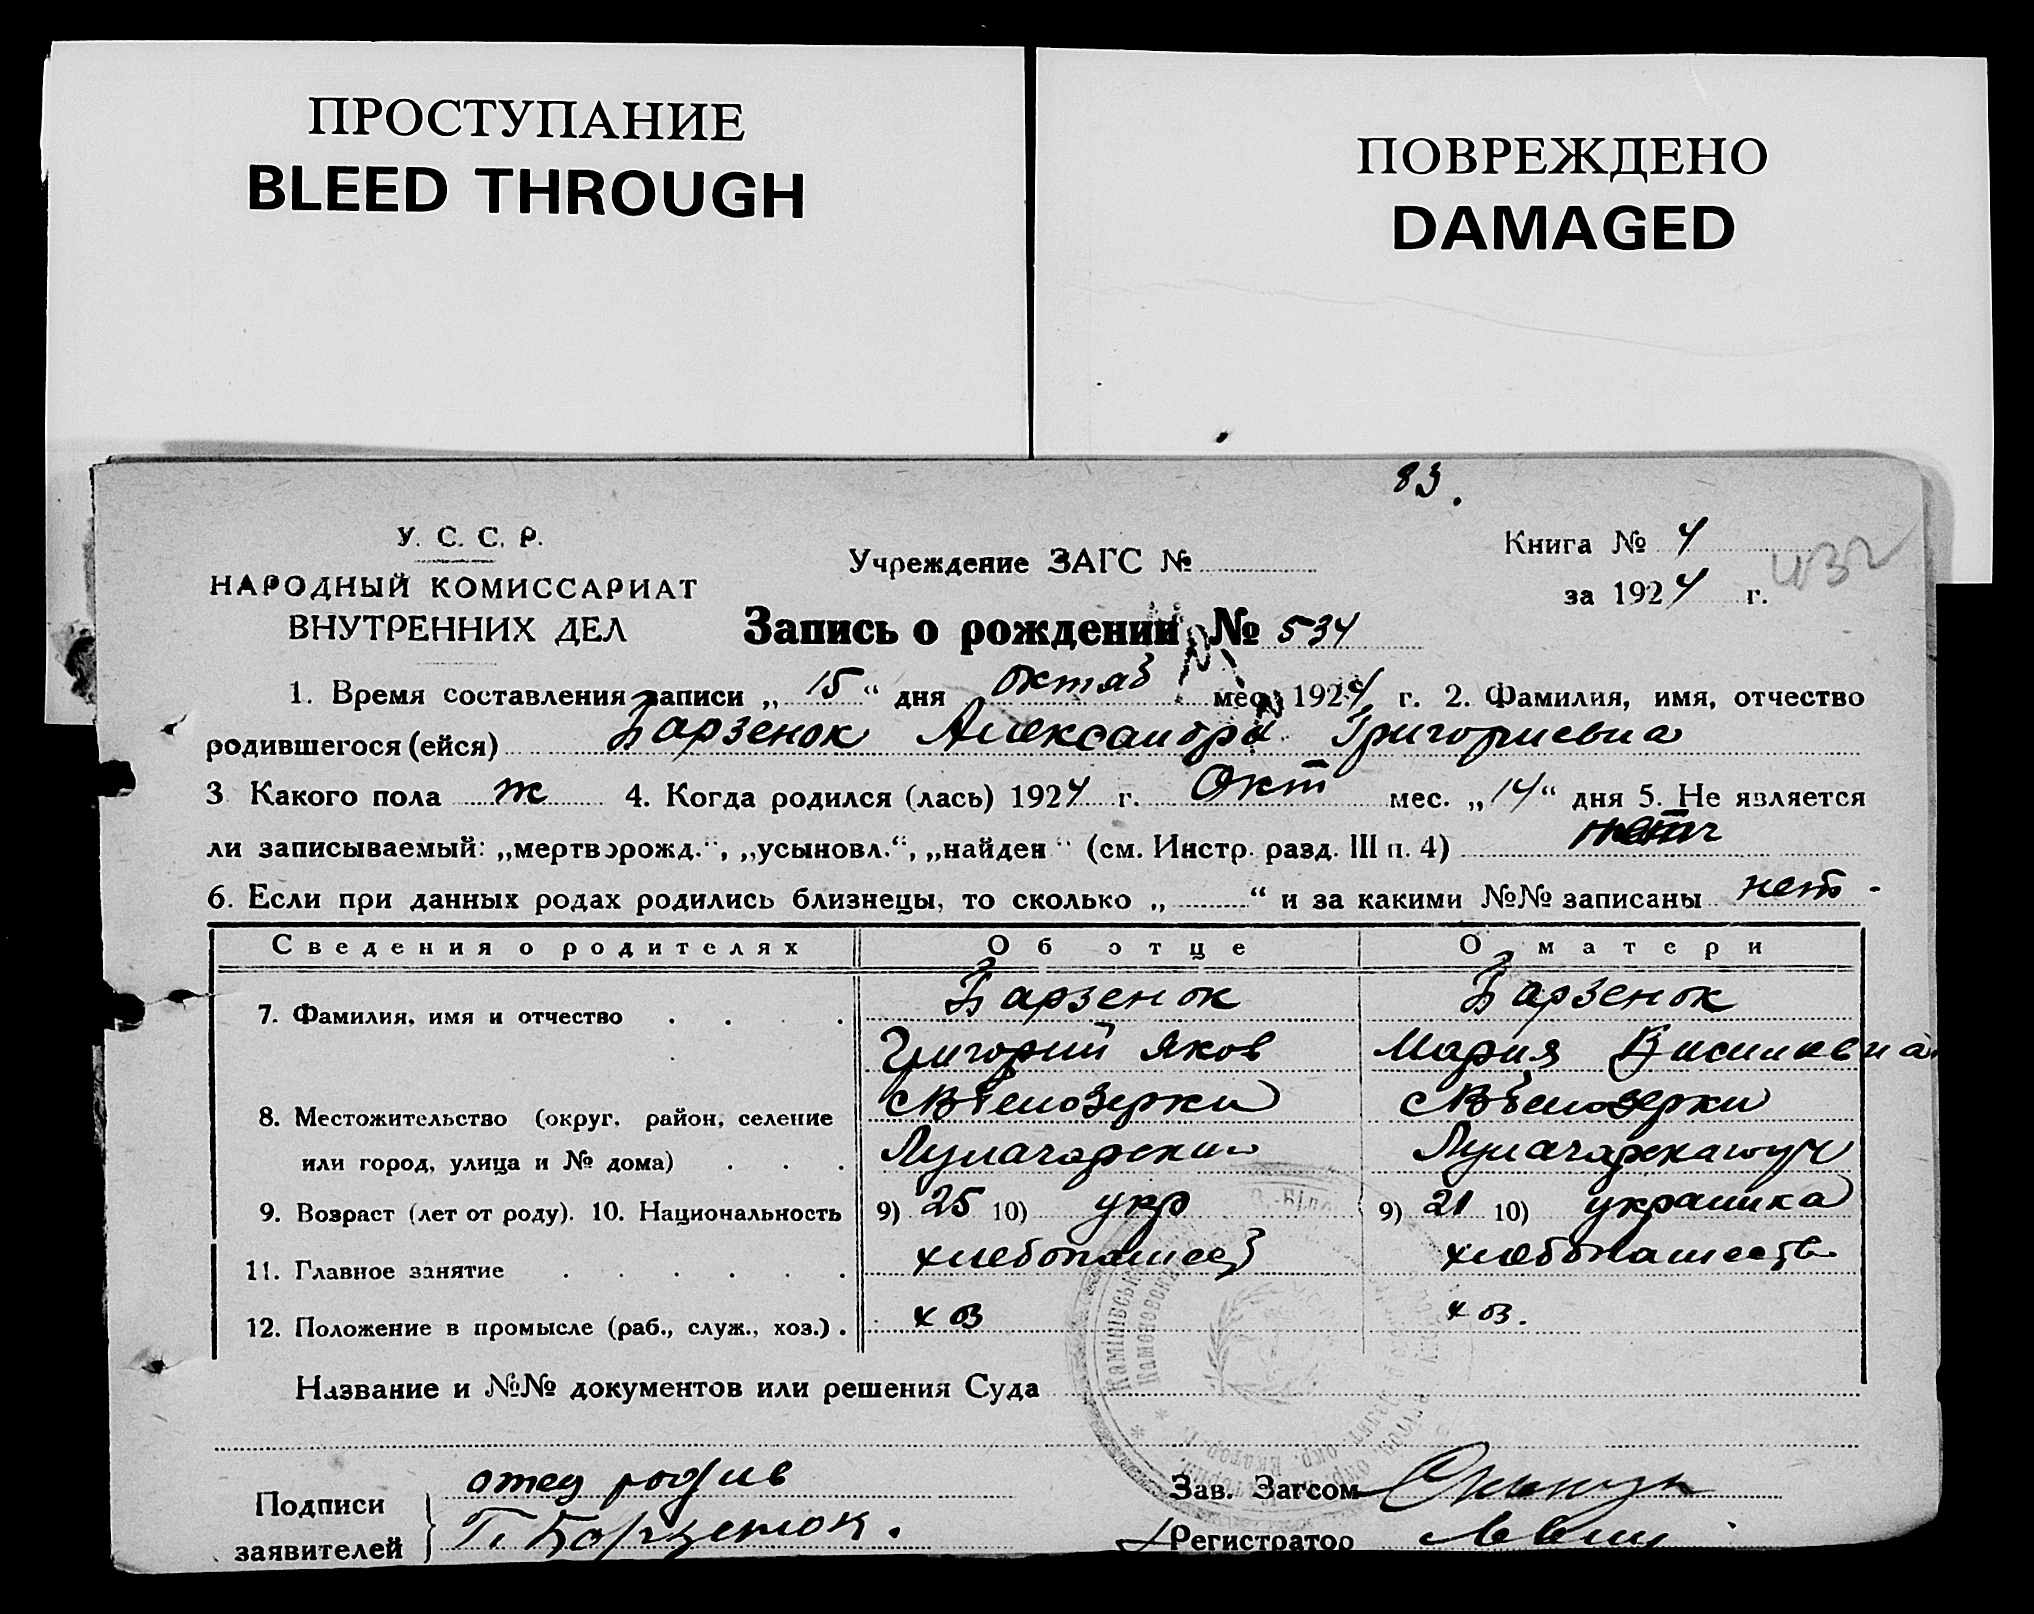 ПРОСТУПАНИЕ
BLEED THROUGH
ПОВРЕЖДЕНО
DAMAGED
83.
У. С. С. Р.
НАРОДНЫЙ КОМИССАРИАТ
ВНУТРЕННИХ ДЕЛ
Учреждение ЗАГС №
Книга № 4
за 1924 г.
432
Запись о рождении № 534
1. Время составления записи „ 15 “ дня октяб мес. 1924 г. 2. Фамилия, имя, отчество
родившегося (ейся) Барзенок Александра Григориевна
3 Какого пола ж 4. Когда родился (лась) 1924 г. Окт мес. „14“ дня 5. Не является
ли записываемый: „мертворожд.“, „усыновл.“, „найден“ (см. Инстр. разд. III п. 4)
6. Если при данных родах родились близнецы, то сколько „ “ и за какими №№ записаны нет.
Сведения о родителях Об отце О матери
7. Фамилия, имя и отчество Барзенок Барзенок
Григорий Яков Мария
8. Местожительство (округ, район, селение
или город, улица и № дома)
9. Возраст (лет от роду). 10. Национальность 9) 25 10) укр 9) 21 10) украинка
11. Главное занятие
12. Положение в промысле (раб., служ., хоз.) хоз хоз.
Название и №№ документов или решения Суда
Подписи
заявителей
отец
Г. Борзенок.
Зав. Загсом
Регистратор